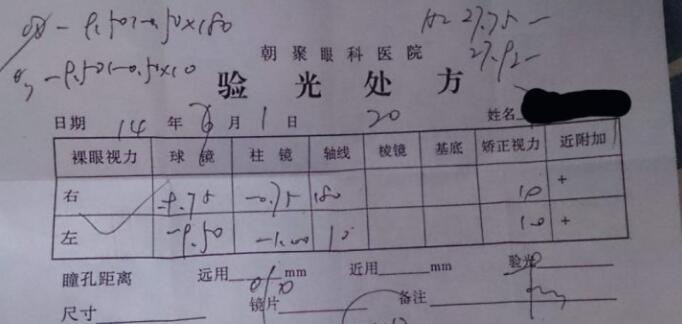 OD -9.50-0.50×180
-9.50-0.50×10
27.75
27.92
朝聚眼科医院
验光处方
日期 14 年 6 月 1 日 20 姓名
裸眼视力 球镜 柱镜 轴线 棱镜 基底 矫正视力 近附加
右 -9.75 -0.75 180 1.0 +
左 -9.50 -1.00 10 1.0 +
瞳孔距离 远用 mm 近用 mm 验光
尺寸 镜片 备注